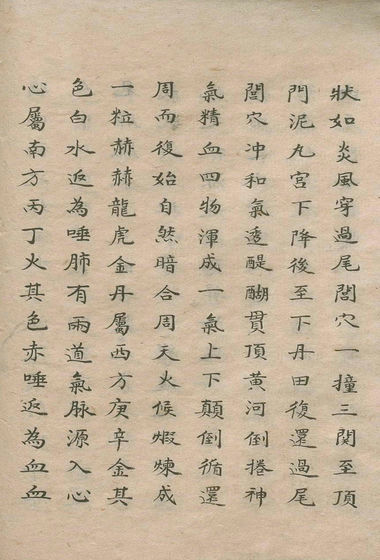 狀如炎風穿過尾閭穴一撞三関至頂
門泥丸宮下降後至下丹田復還過尾
閭穴冲和氣透醍醐貫頂黃河倒捲神
氣精血四物渾成一氣上下顛倒循還
周而復始自然暗合周天火候煆煉成
一粒赫赫龍虎金丹屬西方庚辛金其
色白水返為唾肺有兩道氣脉源入心
心屬南方丙丁火其色赤唾返為血血